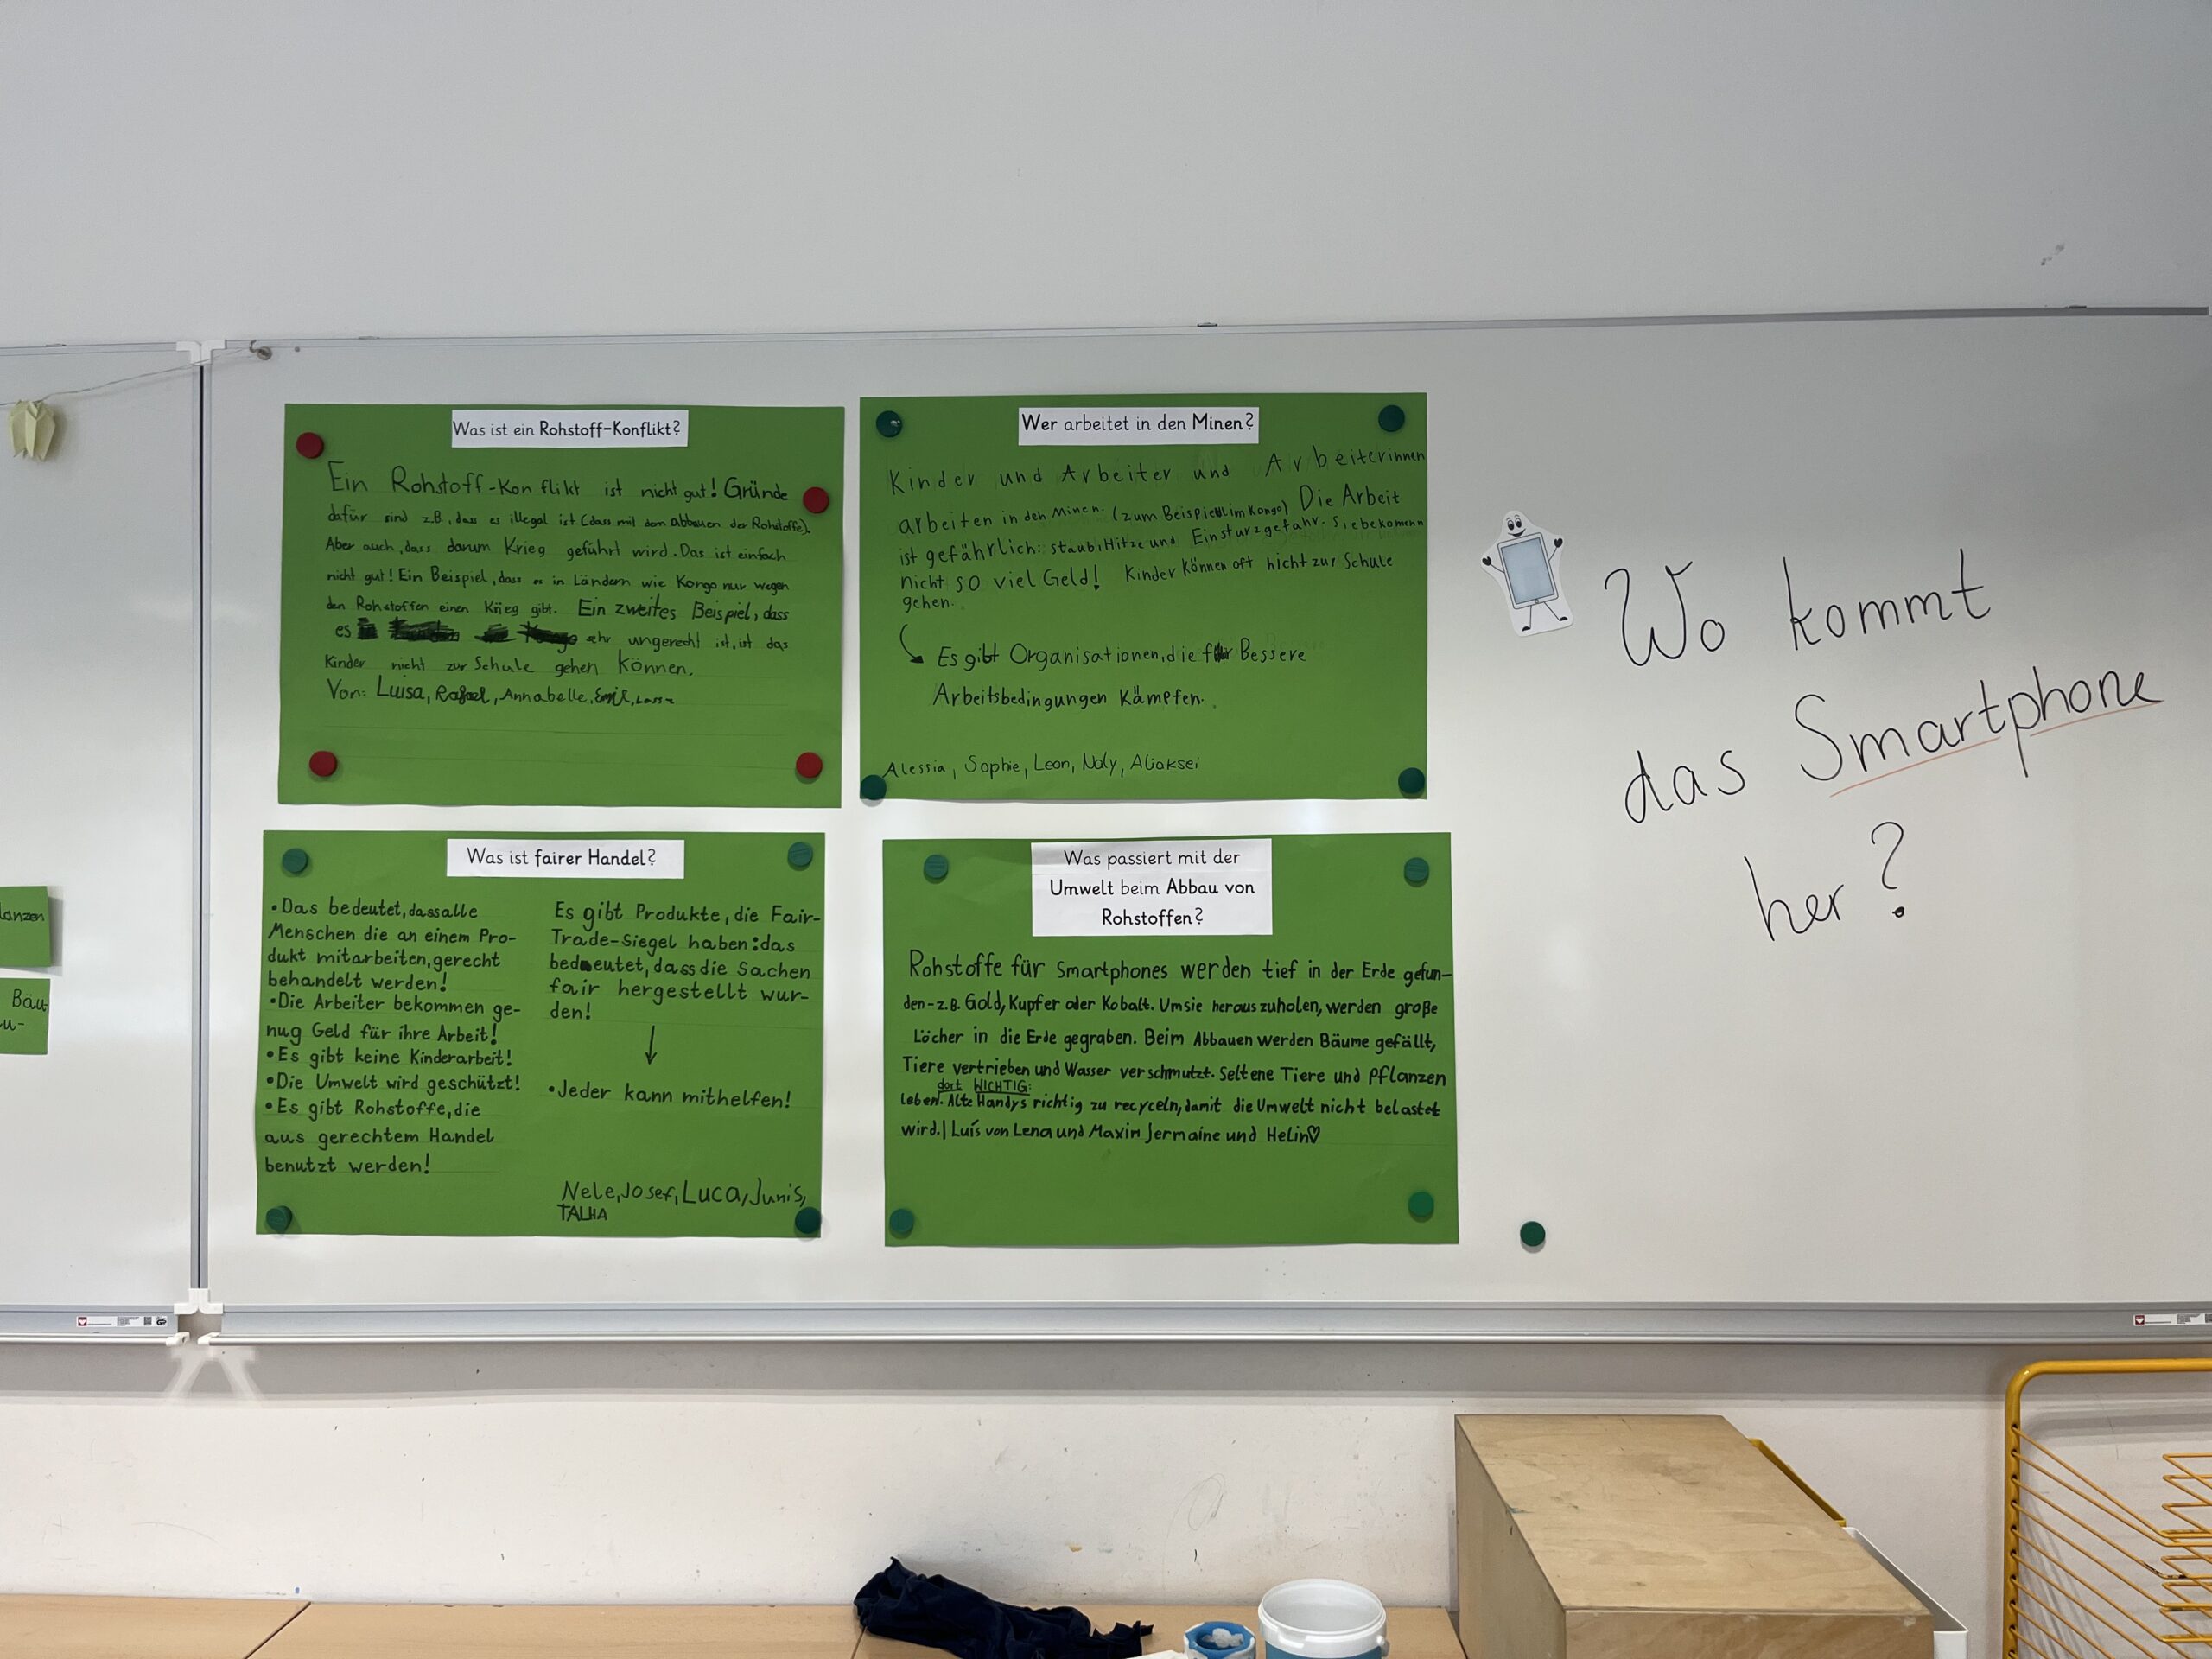 Was ist ein Rohstoff-Konflikt?
Ein Rohstoff-Konflikt ist nicht gut! Gründe
dafür sind z.B., dass es illegal ist (dass mit dem abbauen der Rohstoffe).
Aber auch, dass darum Krieg geführt wird. Das ist einfach
nicht gut! Ein Beispiel, dass es in Ländern wie Kongo nur wegen
den Rohstoffen einen Krieg gibt. Ein zweites Beispiel, dass
es sehr ungerecht ist, ist das
Kinder nicht zur Schule gehen können.
Von: Luisa, Rafael, Annabelle, Emil,
Wer arbeitet in den Minen?
Kinder und Arbeiter und Arbeiterinnen
arbeiten in den Minen. (zum Beispiel im Kongo) Die Arbeit
ist gefährlich: staub, Hitze und Einsturzgefahr. Sie bekommen
nicht so viel Geld! Kinder können oft nicht zur Schule
gehen.
Es gibt Organisationen, die für Bessere
Arbeitsbedingungen Kämpfen.
Alessia, Sophie, Leon, Naly, Aliaksei
Was ist fairer Handel?
• Das bedeutet, dass alle
Menschen die an einem Pro-
dukt mitarbeiten, gerecht
behandelt werden!
• Die Arbeiter bekommen ge-
nug Geld für ihre Arbeit!
• Es gibt keine Kinderarbeit!
• Die Umwelt wird geschützt!
• Es gibt Rohstoffe, die
aus gerechtem Handel
benutzt werden!
Es gibt Produkte, die Fair-
Trade-Siegel haben: das
bedeutet, dass die Sachen
fair hergestellt wur-
den!
• Jeder kann mithelfen!
Nele, Josef, Luca, Junis,
TALHA
Was passiert mit der
Umwelt beim Abbau von
Rohstoffen?
Rohstoffe für Smartphones werden tief in der Erde gefun-
den - z.B. Gold, Kupfer oder Kobalt. Um sie herauszuholen, werden große
Löcher in die Erde gegraben. Beim Abbauen werden Bäume gefällt,
Tiere vertrieben und Wasser verschmutzt. Seltene Tiere und Pflanzen
dort WICHTIG:
leben. Alte Handys richtig zu recyceln, damit die Umwelt nicht belastet
wird. | Luis von Lena und Maxim Jermaine und Helin♡
Wo kommt
das Smartphone
her?
lanzen
Bäu-
u-